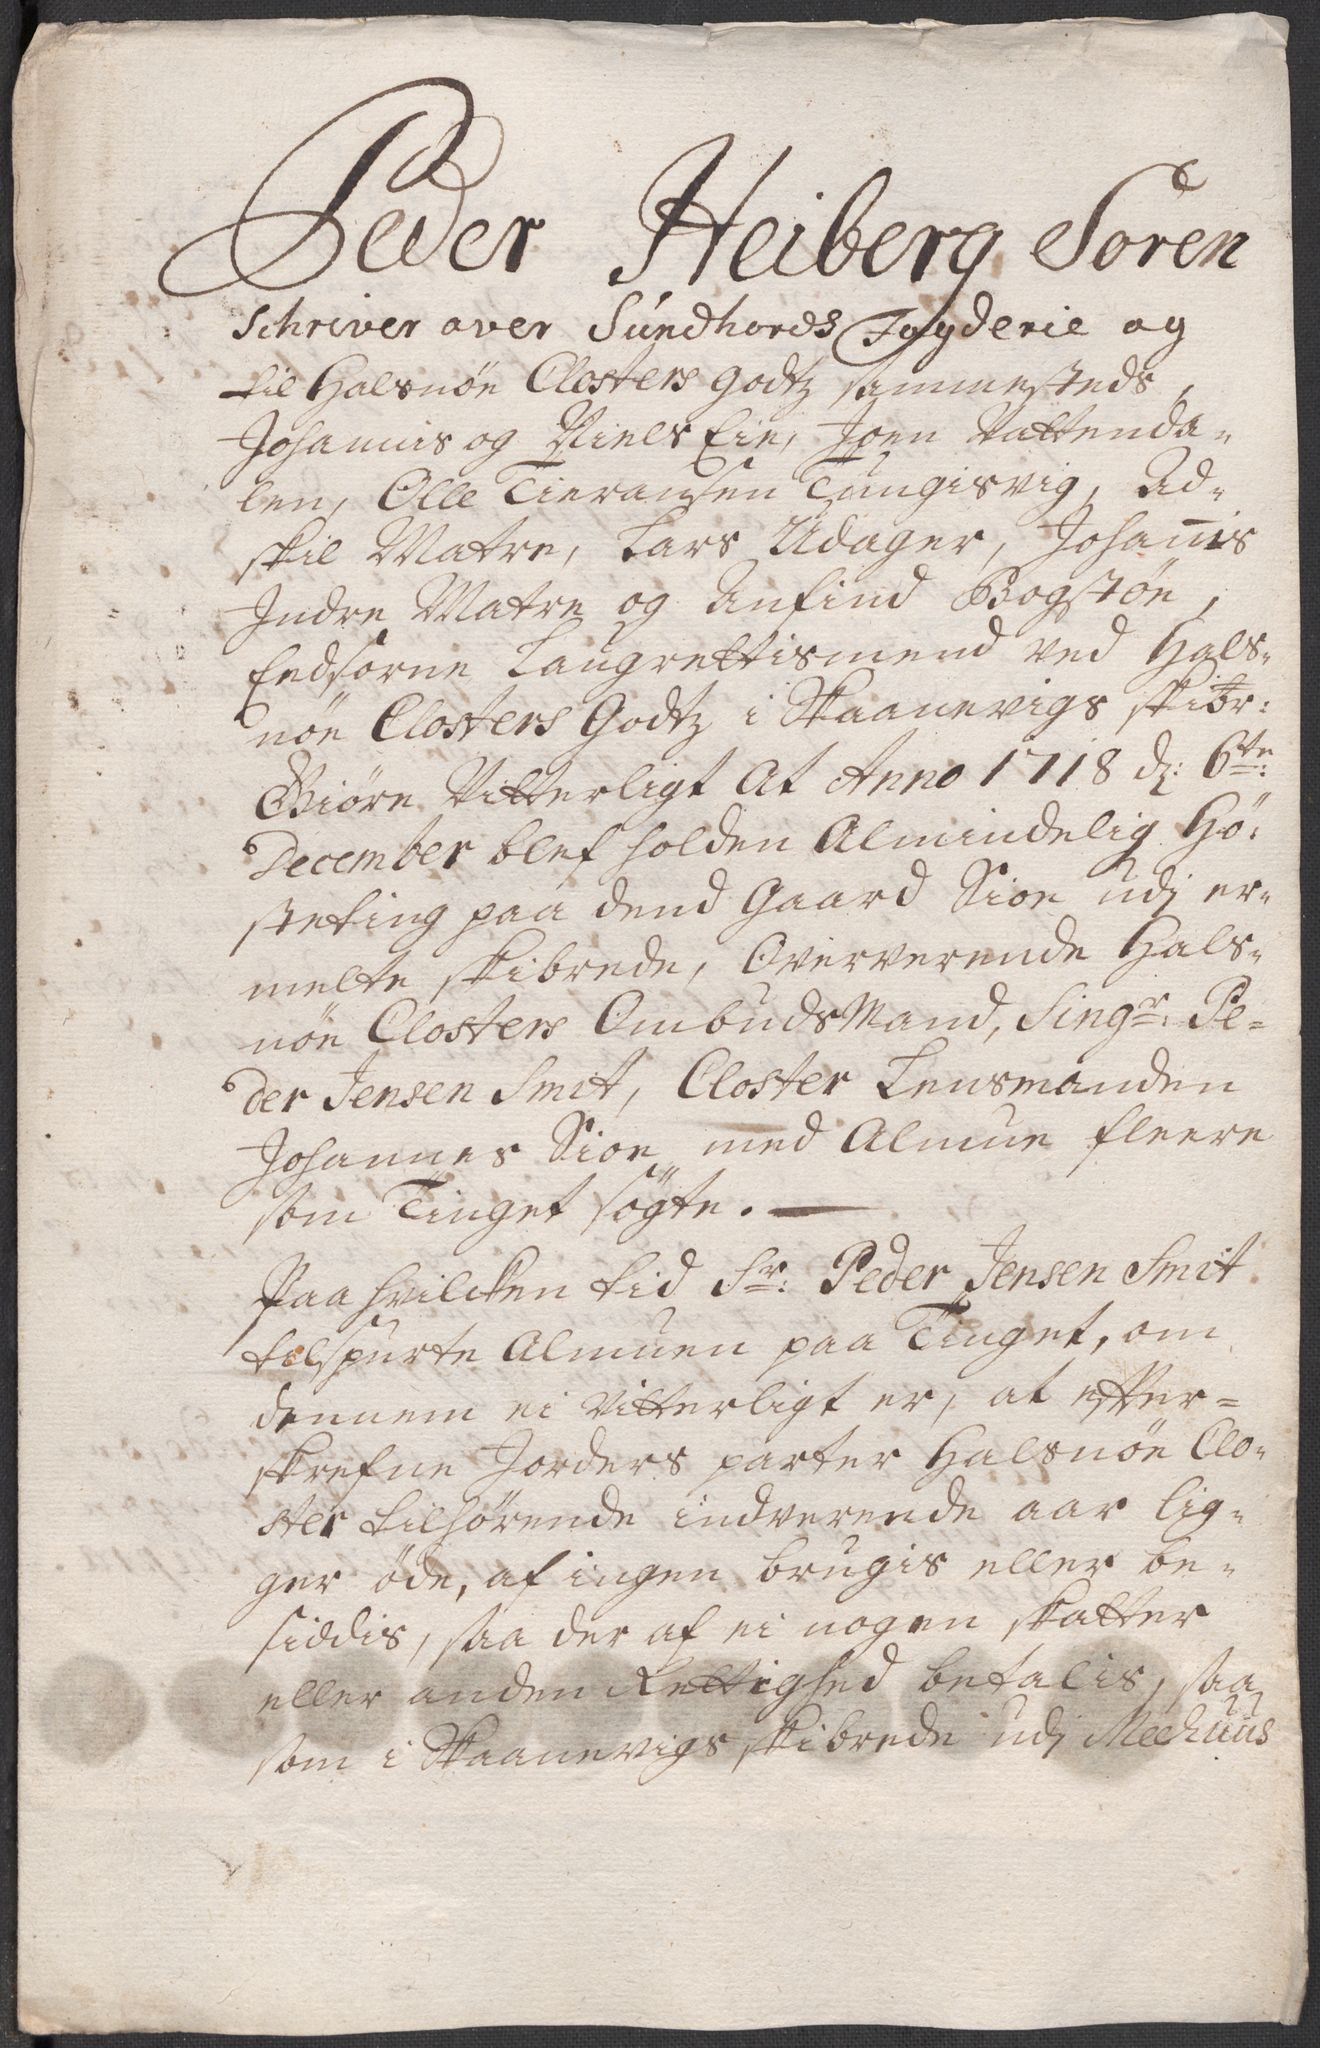 Peder Heiberg Soren
schriver over Sundhords Fogderie og
til Halsnöe Closters Godtz sammesteds,
Johannis og Niels Eie, Joen Vattenda-
len, Olle Tieransen Tungisvig, Ad-
skil Matre, Lars Udager, Johannis
Indre Matre og Anfind Bogstöe,
Eedsorne Laugrettismend ved Hals-
nöe Closters Godtz i Skaanevigs skibr:
Giöre Vitterligt At Anno 1718 d: 6te:
December blef holden Almindelig Hö-
steting paa dend Gaard Sioe udj er-
melte skibrede, Oververende Hals-
nöe Closters OmbudsMand, Singr: Pe-
der Jensen Smit, Closter Lensmanden
Johannes Sioe med Almue fleere
som Tinget sögte. —
Paa hvilcken tid Sr: Peder Jensen Smit
tilspurte Almuen paa Tinget, om
dennem ei Vitterligt er, at efter-
skrefne Jorders parter Halsnöe Clo-
ster tilhörende indverende aar lig-
ger öde, af ingen brugis eller be-
siddis, saa der af ei nogen skatter
eller anden Rettighed betalis, saa
som i Skaanevigs skibrede udj Meehuus